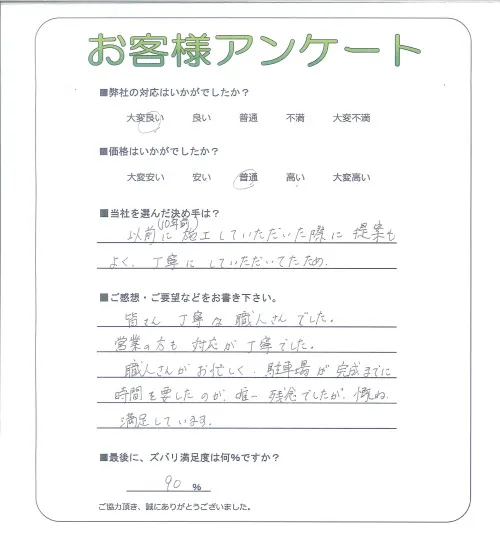 お客様アンケート
■弊社の対応はいかがでしたか？
大変良い 良い 普通 不満 大変不満
■価格はいかがでしたか？
大変安い 安い 普通 高い 大変高い
■当社を選んだ決め手は？
(10年前)
以前に施工していただいた際に提案も
よく、丁寧にしていただいてたため.
■ご感想・ご要望などをお書き下さい。
皆さん丁寧な職人さんでした。
営業の方も対応が丁寧でした。
職人さんがお忙しく、駐車場が完成までに
時間を要したのが、唯一残念でしたが、概ね
満足しています.
■最後に、ズバリ満足度は何%ですか？
90 %
ご協力頂き、誠にありがとうございました。